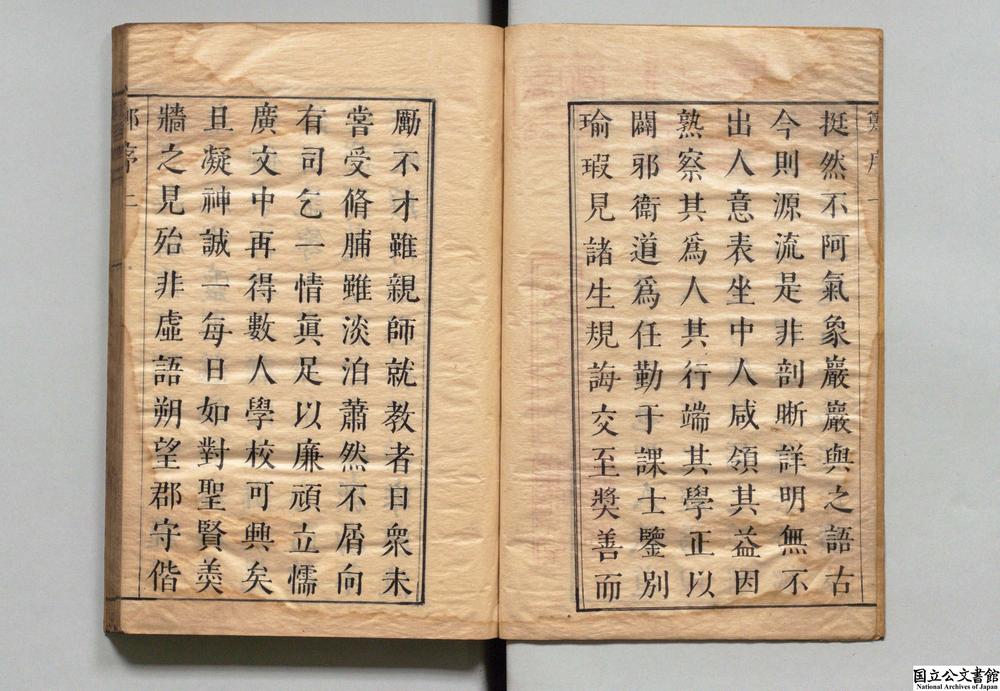 挺然不阿氣象巖巖與之語古
今則源流是非剖晰詳明無不
出人意表坐中人咸領其益因
熟察其爲人其行端其學正以
闢邪衛道爲任勤于課士鑒別
瑜瑕見諸生規誨交至獎善而
勵不才雖親師就教者日衆未
嘗受脩脯雖淡泊蕭然不屑向
有司乞一情眞足以廉頑立懦
廣文中再得數人學校可興矣
且凝神誠一每日如對聖賢羮
牆之見殆非虛語朔望郡守偕
序二
国立公文書館
National Archives of Japan